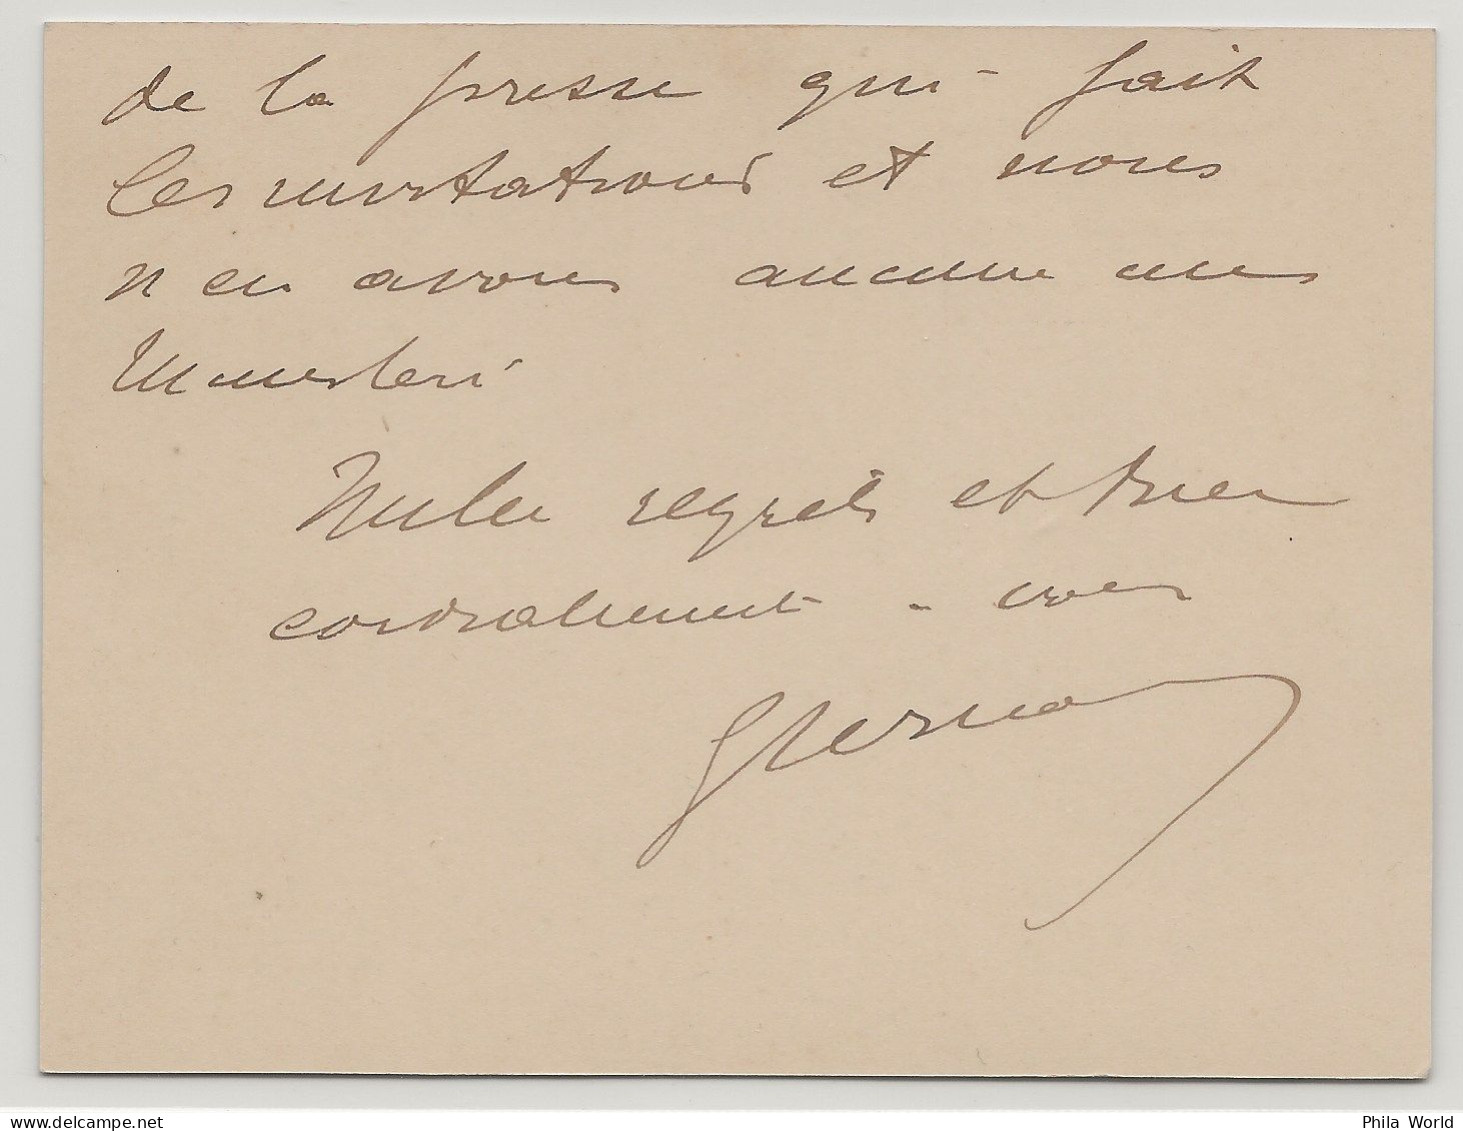 de la presse qui fait
les invitations et nous
n'en avons aucune au
Ministère
Mille regrets et bien
cordialement
delcampe.net
Phila World